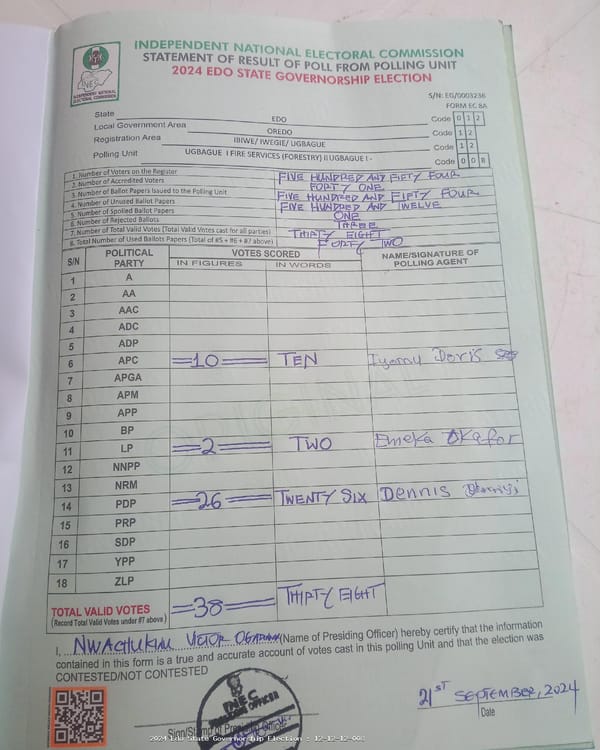 INDEPENDENT NATIONAL ELECTORAL COMMISSION
STATEMENT OF RESULT OF POLL FROM POLLING UNIT
2024 EDO STATE GOVERNORSHIP ELECTION
INEC
INDEPENDENT NATIONAL ELECTORAL COMMISSION
S/N: EG/0003236
FORM EC 8A
State EDO Code 0 1 2
Local Government Area OREDO Code 1 2
Registration Area IBIWE/ IWEGIE/ UGBAGUE Code 1 2
Polling Unit UGBAGUE I FIRE SERVICES (FORESTRY) II UGBAGUE I - Code 0 0 8
1. Number of Voters on the Register FIVE HUNDRED AND FIFTY FOUR
2. Number of Accredited Voters FORTY ONE
3. Number of Ballot Papers Issued to the Polling Unit FIVE HUNDRED AND FIFTY FOUR
4. Number of Unused Ballot Papers FIVE HUNDRED AND TWELVE
5. Number of Spoiled Ballot Papers ONE
6. Number of Rejected Ballots THREE
7. Number of Total Valid Votes (Total Valid Votes cast for all parties) THIRTY EIGHT
8. Total Number of Used Ballots Papers (Total of #5 + #6 + #7 above) FORTY TWO
S/N POLITICAL PARTY VOTES SCORED NAME/SIGNATURE OF POLLING AGENT
IN FIGURES IN WORDS
1 A
2 AA
3 AAC
4 ADC
5 ADP
6 APC =10= TEN Doris
7 APGA
8 APM
9 APP
10 BP
11 LP =2= TWO Emeka Okafor
12 NNPP
13 NRM
14 PDP =26= TWENTY SIX Dennis
15 PRP
16 SDP
17 YPP
18 ZLP
TOTAL VALID VOTES =38= THIRTY EIGHT
(Record Total Valid Votes under #7 above)
I, VICTOR (Name of Presiding Officer) hereby certify that the information
contained in this form is a true and accurate account of votes cast in this polling Unit and that the election was
CONTESTED/NOT CONTESTED
INEC
Sign/Stamp of Presiding Officer
21ST SEPTEMBER, 2024
Date
2024 Edo State Governorship Election : 12-12-12-008